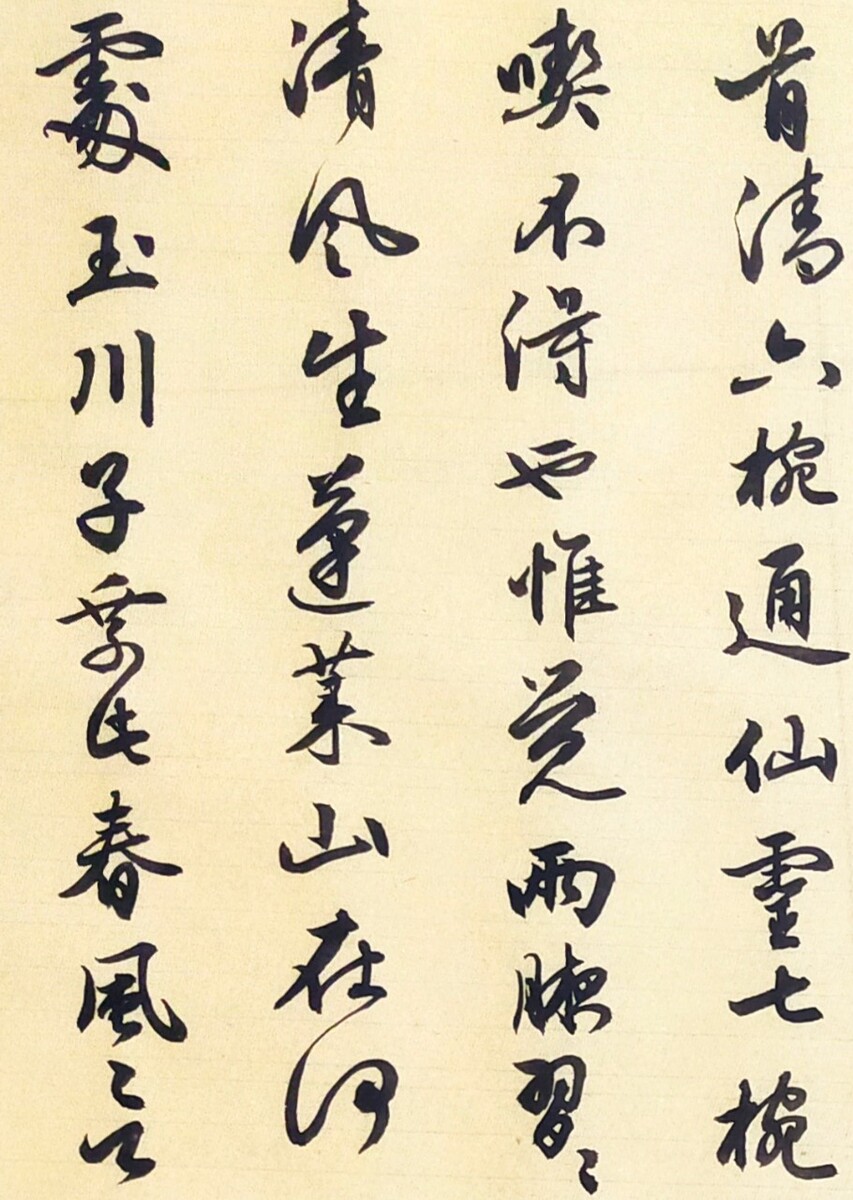 骨清六椀通仙靈七椀
喫不得也惟覺兩腋習〻
清風生蓬萊山在何
處玉川子乗此春風〻